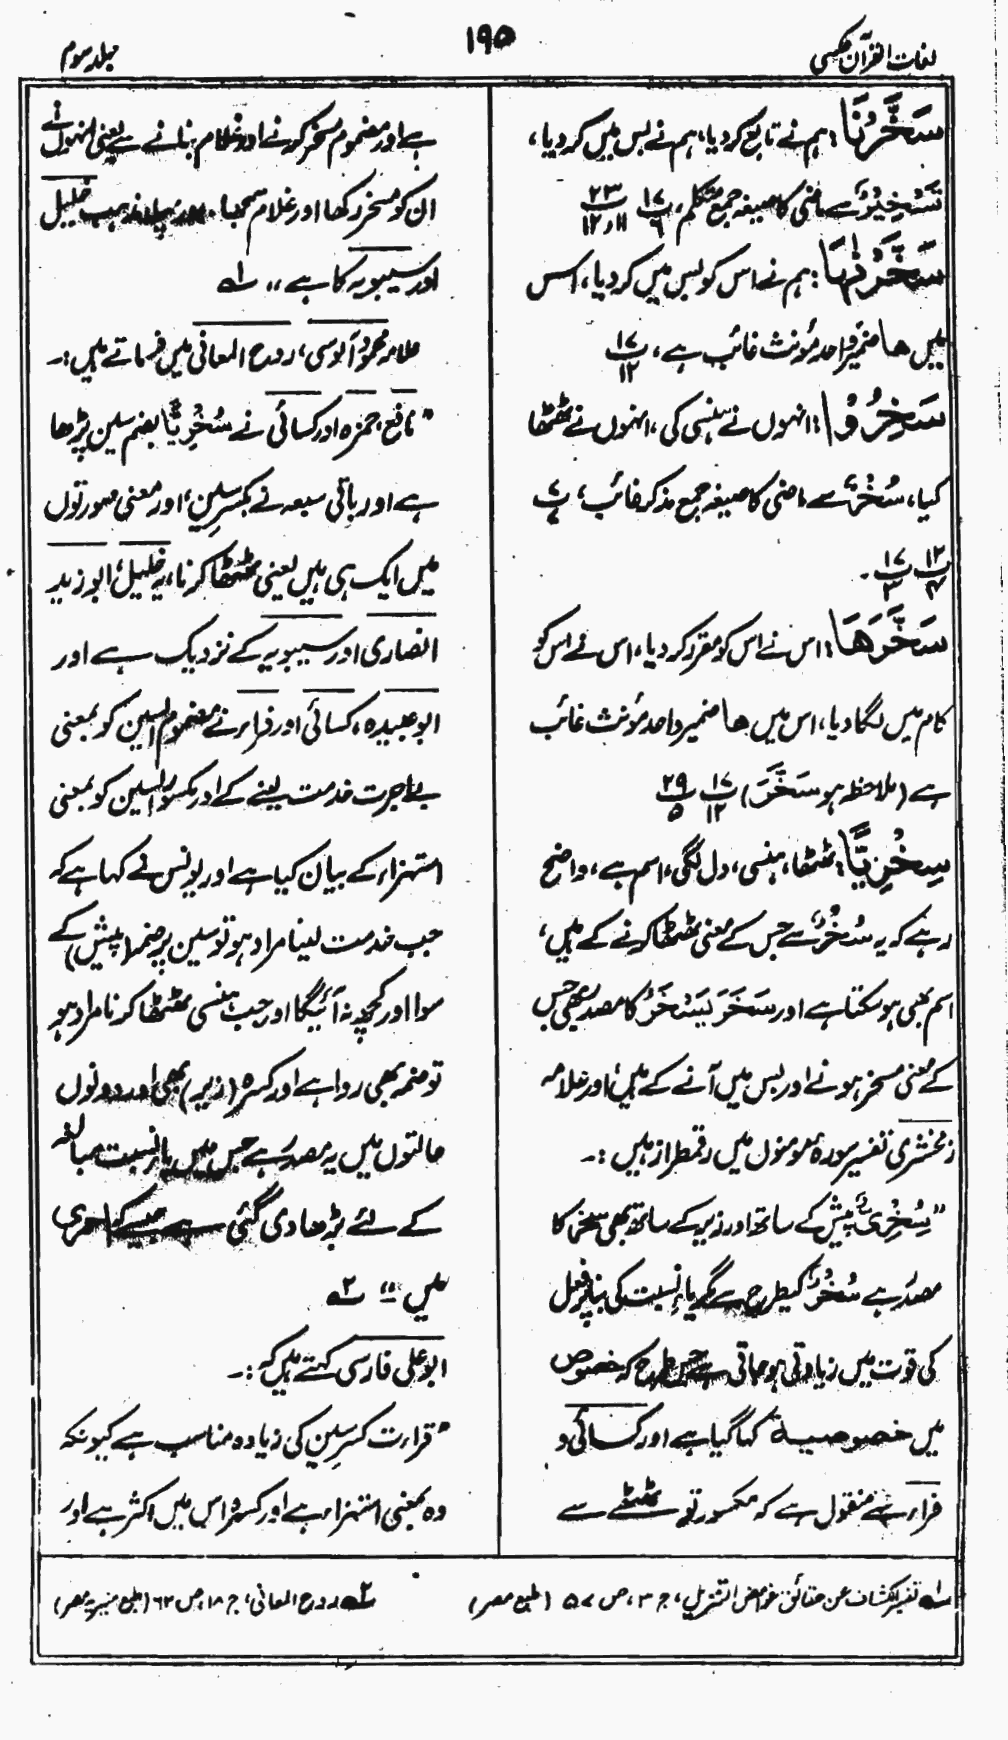 لغات القرآن مکمل
۱۹۵
جلد سوم
سَخَّرْنَا: ہم نے تابع کر دیا، ہم نے بس میں کر دیا،
تَسْخِیْرٌ سے ماضی کا صیغہ جمع متکلم، ۱۷/۶ ۲۳/۱۱و۱۲
سَخَّرْنٰهَا: ہم نے اس کو بس میں کر دیا، اس
میں ها ضمیر واحد مؤنث غائب ہے، ۱۷/۱۲
سَخِرُوْا: انہوں نے ہنسی کی، انہوں نے ٹھٹھا
کیا، سُخْرٌ سے ماضی کا صیغہ جمع مذکر غائب، پ ۷
۱۲/۴ ۱۷/۳۔
سَخَّرَهَا: اس نے اس کو مقرر کر دیا، اس نے اس کو
کام میں لگا دیا، اس میں ها ضمیر واحد مؤنث غائب
ہے (ملاحظہ ہو سَخَّرَ) ۱۷/۱۲ ۲۹/۵
سِخْرِيًّا: ٹھٹھا، ہنسی، دل لگی، اسم ہے، واضح
رہے کہ یہ سُخْرٌ سے جس کے معنی ٹھٹھا کرنے کے ہیں،
اسم بھی ہو سکتا ہے اور سَخَرَ یَسْخَرُ کا مصدر بھی جس
کے معنی مسخر ہونے اور بس میں آنے کے ہیں، اور علامہ
زمخشری تفسیر سورہ مومنون میں رقمطراز ہیں :۔
"سُخْرِیٌّ پیش کے ساتھ اور زیر کے ساتھ بھی سخر کا
مصدر ہے سُخْرٌ کیطرح سے مگر یاء نسبت کی بنا پر فعل
کی قوت میں زیادتی ہو جاتی ہے جس طرح کہ خصوص
میں خصوصیۃ کہا گیا ہے اور کسائی و
فراء سے منقول ہے کہ مکسور تو ٹھٹھے سے
ہے اور مضموم مسخر کرنے اور غلام بنانے سے یعنی انہوں نے
ان کو مسخر رکھا اور غلام سمجھا، اور پہلا مذہب خلیل
اور سیبویہ کا ہے،، ۱؎
علامہ محمود آلوسی، روح المعانی میں فرماتے ہیں :۔
"نافع، حمزہ اور کسائی نے سُخْرِيًّا بضم سین پڑھا
ہے اور باقی سبعہ نے بکسر سین، اور معنی صورتوں
میں ایک ہی ہیں یعنی ٹھٹھا کرنا، یہ خلیل، ابو زید
انصاری اور سیبویہ کے نزدیک ہے اور
ابو عبیدہ، کسائی اور فراء نے مضموم السین کو بمعنی
بلا اجرت خدمت لینے کے اور مکسور السین کو بمعنی
استہزاء کے بیان کیا ہے اور یونس نے کہا ہے کہ
جب خدمت لینا مراد ہو تو سین پر ضمہ (پیش) کے
سوا اور کچھ نہ آئیگا اور جب ہنسی ٹھٹھا کرنا مراد ہو
تو ضمہ بھی روا ہے اور کسرہ (زیر) بھی اور دونوں
حالتوں میں یہ مصدر ہے جس میں یاء نسبت مبالغہ
کے لئے بڑھا دی گئی ہے جیسے کہ احمری
میں،، ۲؎
ابو علی فارسی کہتے ہیں کہ :۔
"قراءت کسر سین کی زیادہ مناسب ہے کیونکہ
وہ بمعنی استہزاء ہے اور کسرہ اس میں اکثر ہے اور
۱؎ تفسیر کشاف عن حقائق غوامض التنزیل، ج ۳، ص ۵۷ (طبع مصر)
۲؎ روح المعانی، ج ۱۸، ص ۶۲ (طبع منیریہ مصر)